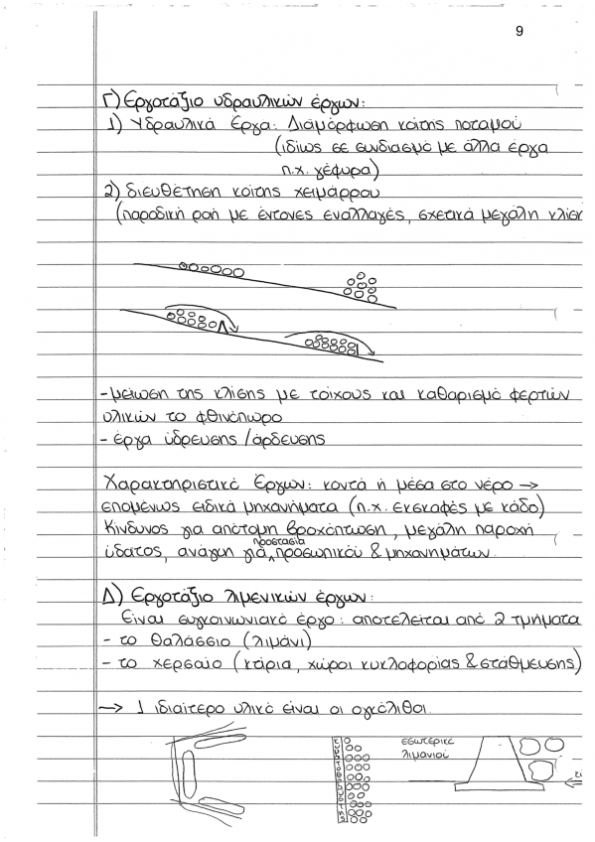 9
Γ) Εργοτάξιο υδραυλικών έργων:
1) Υδραυλικά Έργα: Διαμόρφωση κοίτης ποταμού
(ιδίως σε συνδιασμό με άλλα έργα
π.χ. γέφυρα)
2) διευθέτηση κοίτης χειμάρρου
(παροδική ροή με έντονες εναλλαγές, σχετικά μεγάλη
- μείωση της κλίσης με τοίχους και καθαρισμό φερτών
υλικών το φθινόπωρο
- έργα ύδρευσης / άρδευσης
Χαρακτηριστικό Έργων: κοντά ή μέσα στο νερό →
επομένως ειδικά μηχανήματα (π.χ. εκσκαφές με κάδο)
Κίνδυνος για απότομη βροχόπτωση, μεγάλη παροχή
ύδατος, ανάγκη για προστασία προσωπικού & μηχανημάτων.
Δ) Εργοτάξιο λιμενικών έργων:
Είναι συγκοινωνιακό έργο: αποτελείται από 2 τμήματα
- το θαλάσσιο (λιμάνι)
- το χερσαίο (κτίρια, χώροι κυκλοφορίας & στάθμευσης)
→ 1 ιδιαίτερο υλικό είναι οι ογκόλιθοι.
εσωτερικό
λιμανιού